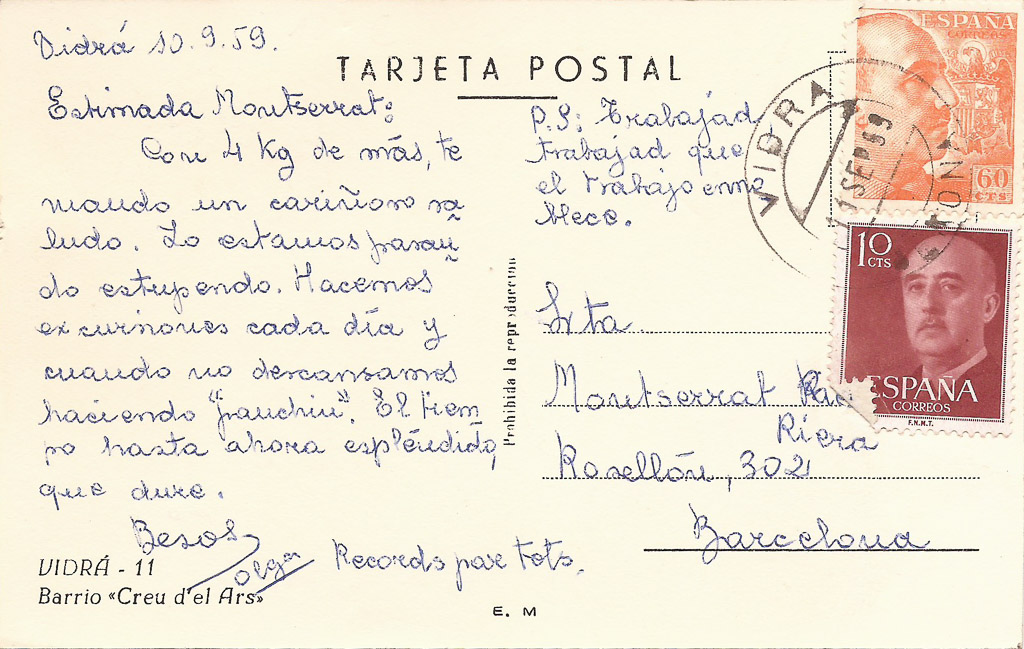 Vidrá 10.9.59.
TARJETA POSTAL
Estimada Montserrat:
Con 4 Kg de más, te
mando un cariñoso sa
ludo. Lo estamos pasan
do estupendo. Hacemos
excursiones cada día y
cuando no descansamos
haciendo "panchin". El tiem
po hasta ahora espléndido,
que dure.
Besos
Olga
Records par tots.
VIDRÁ - 11
Barrio «Creu d'el Ars»
P.S: Trabajad
trabajad que
el trabajo enno
blece.
Prohibida la reproduccion
Srta
Montserrat
Riera
Rosellón, 302
Barcelona
E. M
VIDRA
11 SEP 59
ESPAÑA
CORREOS
60
CTS
10
CTS
ESPAÑA
CORREOS
F.N.M.T.